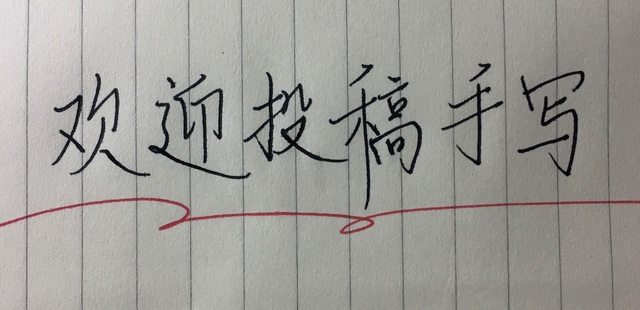 欢迎投稿手写